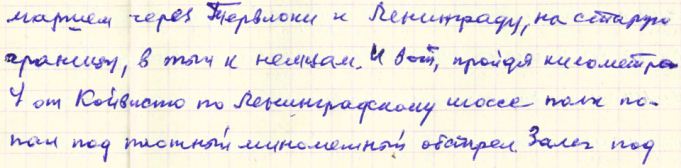 маршем через Тервлоки к Ленинграду, на старую
границу, в тыл к немцам. И вот, пройдя километра
4 от Койвисто по Ленинградскому шоссе полк по-
пал под плотный минометный обстрел Залег под